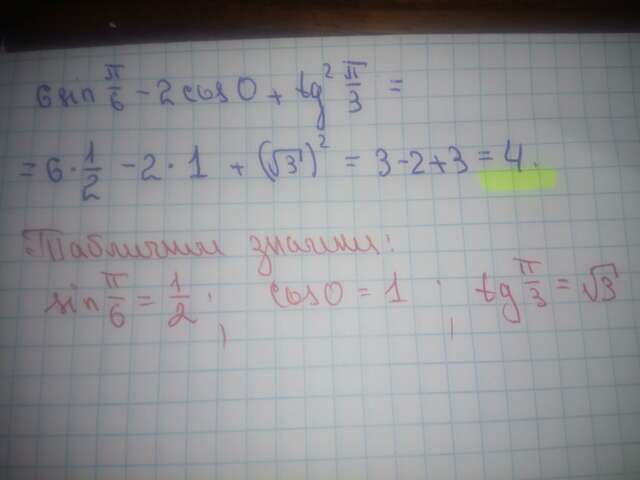 6 sin π/6 - 2 cos 0 + tg² π/3 =
= 6 · 1/2 - 2 · 1 + (√3)² = 3 - 2 + 3 = 4.
Табличнии значии:
sin π/6 = 1/2 ; cos 0 = 1 ; tg π/3 = √3